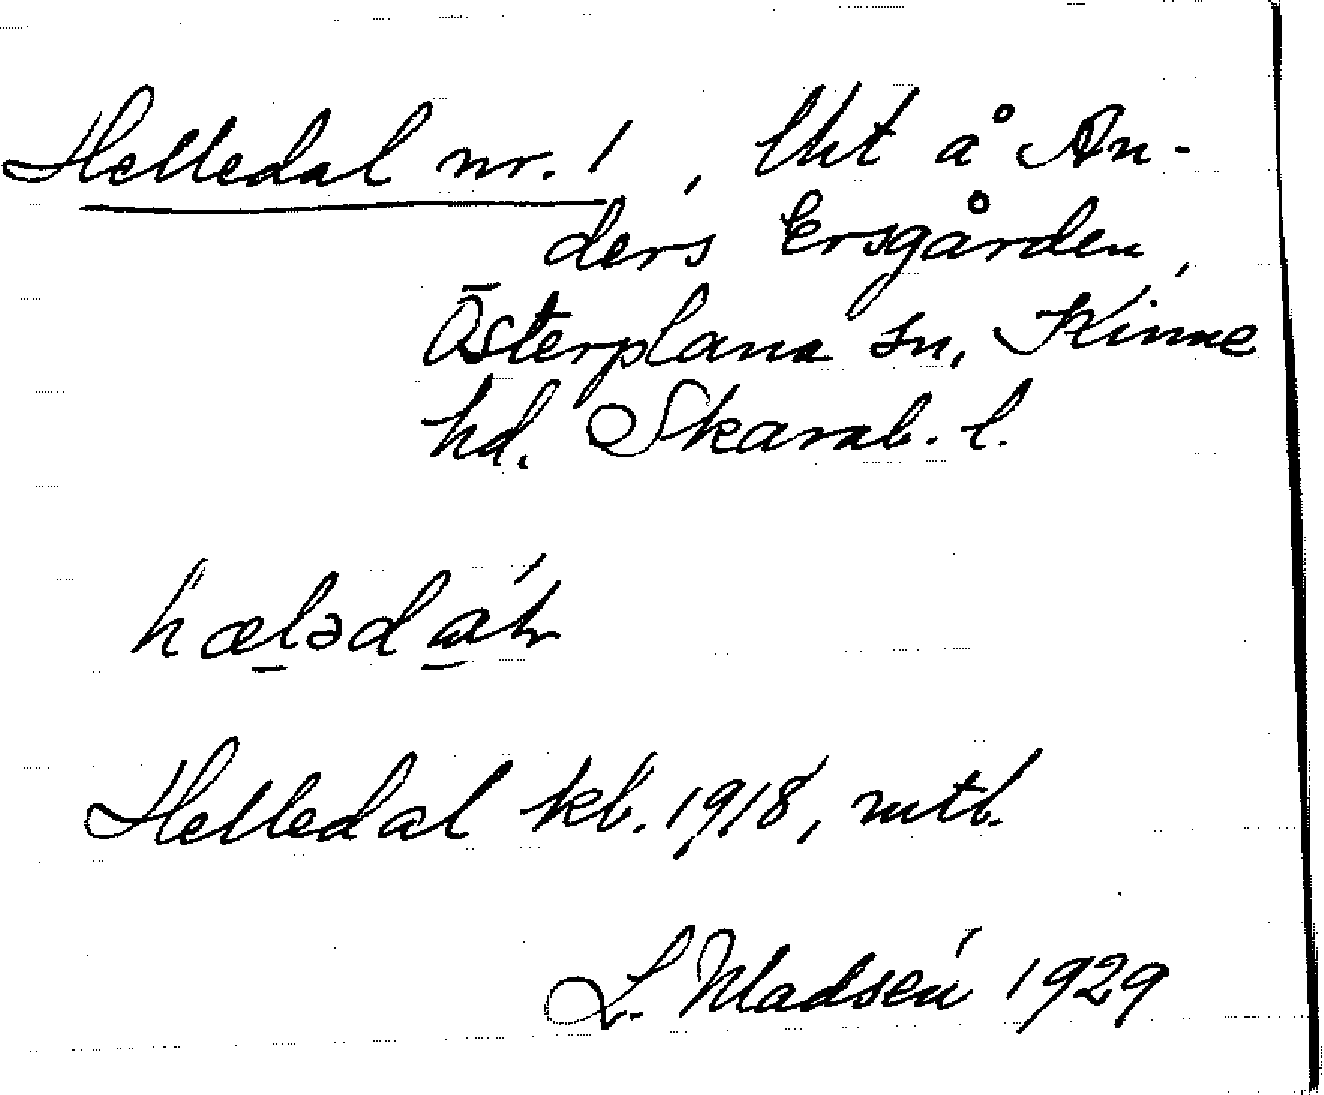 Helledal nr. 1, lht å An-
ders Ersgården,
Österplana sn, Kinne
hd. Skarab. l.
hæledal
Helledal kb. 1918, mtb.
L. Madsén 1929